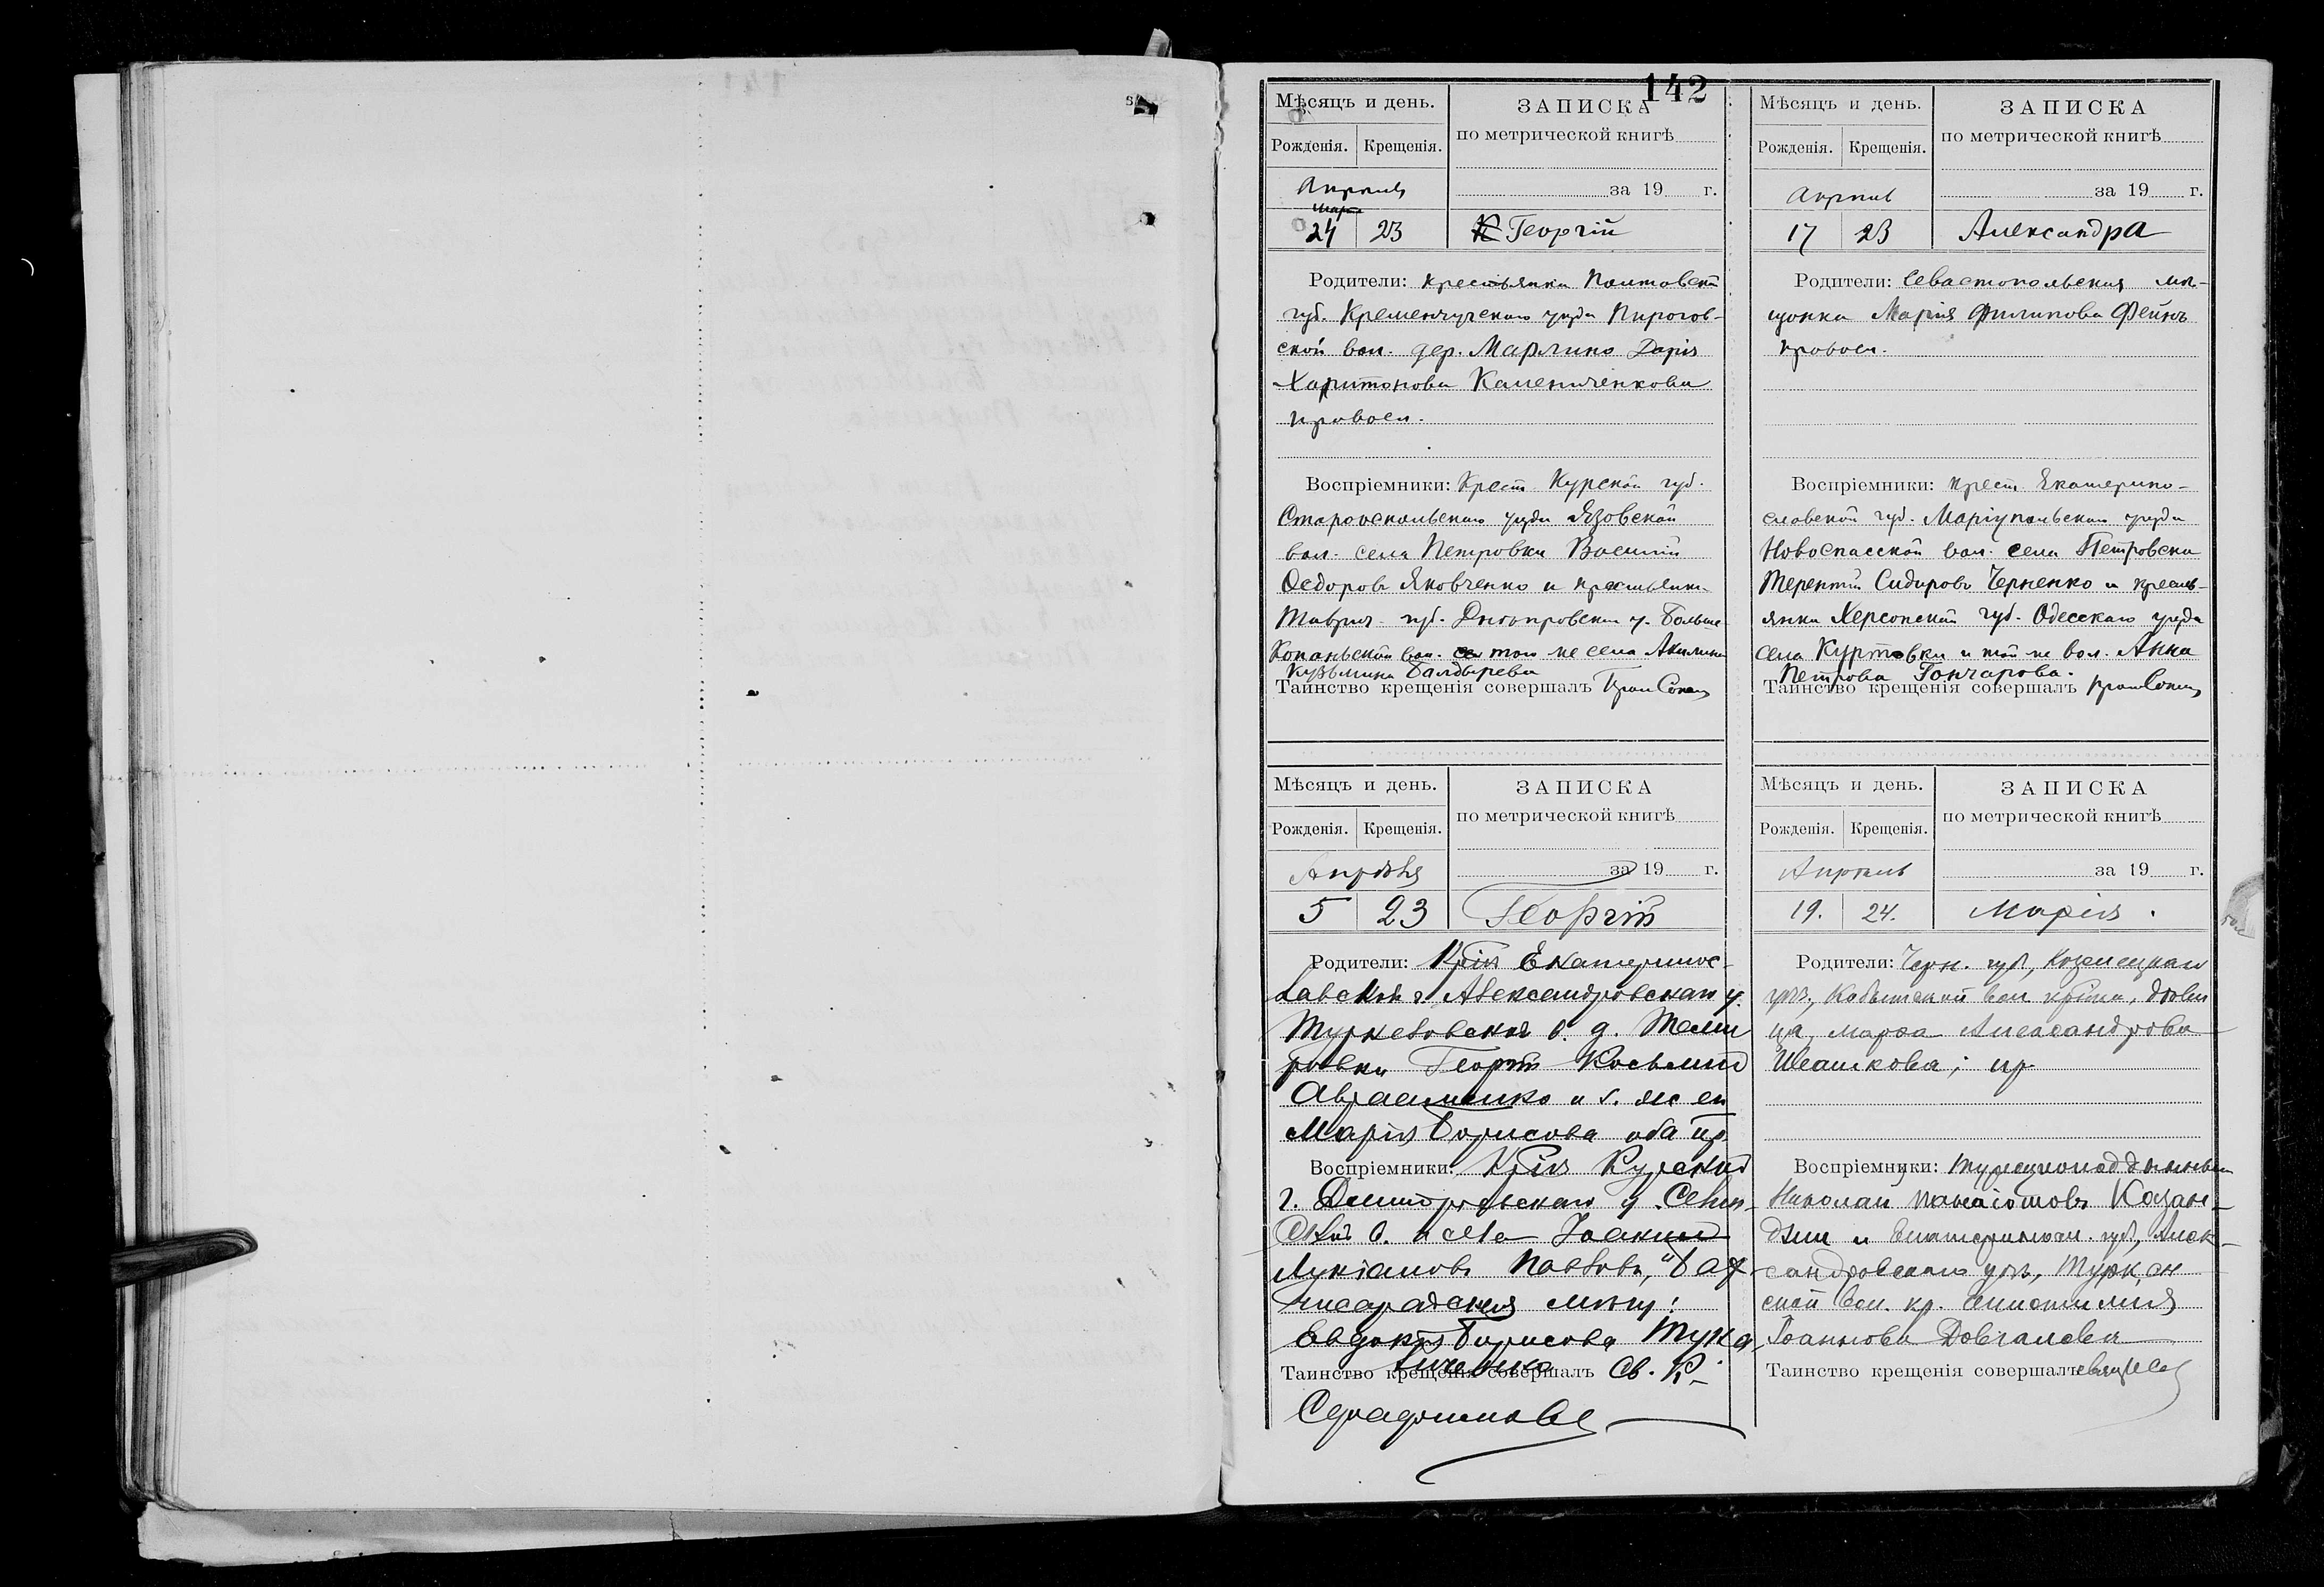 142
Мѣсяцъ и день.
ЗАПИСКА
по метрической книгѣ
Рожденія. Крещенія.
Апрѣль
за 19 г.
Марта
24 23 Георгій
Родители: крестьянка Полтавской
губ. Кременчугскаго уѣзда Пирогов-
ской вол. дер. Марлино Дарія
Харитонова Каменченкова
правосл.
Воспріемники: Крест. Курской губ.
Старооскольскаго уѣзда Язовской
вол. села Петровки Василій
Ѳедоровъ Яковченко и крестьянка
Таврич. губ. Днѣпровскаго у. Больше-
Копаньской вол. того же села Акилина
Кузьмина Балдырева
Таинство крещенія совершалъ
Мѣсяцъ и день.
ЗАПИСКА
по метрической книгѣ
Рожденія. Крещенія.
Апрѣль
за 19 г.
17 23 Александра
Родители: Севастопольская мѣ-
щанка Марія Филипова Фейнъ
правосл.
Воспріемники: крест. Екатерино-
славской губ. Маріупольскаго уѣзда
Новоспасской вол. села Петровски
Терентій Сидоровъ Черненко и кресть-
янка Херсонской губ. Одесскаго уѣзда
села Куртовки и той же вол. Анна
Петрова Гончарова.
Таинство крещенія совершалъ
Мѣсяцъ и день.
ЗАПИСКА
по метрической книгѣ
Рожденія. Крещенія.
Апрѣля
за 19 г.
5 23 Георгій
Родители: Екатеринос-
лавской г. Александровскаго у.
Туркеновской в. д. Теми
ровки Георгій Косьминъ
Авраменко и з. ж. ея
Марія Борисова оба пр.
Воспріемники: Курской
г. Дмитровскаго у.
в. и села Іоакимъ
Лукіановъ Павловъ, и Бах-
чисарайская мѣщ:
Евдокія Борисова
Таинство крещенія совершалъ Св. К.
Серафимовъ
Мѣсяцъ и день.
ЗАПИСКА
по метрической книгѣ
Рожденія. Крещенія.
Апрѣль
за 19 г.
19. 24. Марія.
Родители: Черн. губ., Козелецкаго
уѣз., Кобыжской вол. дѣви
ца, Марѳа Александрова
Шеашкова; пр.
Воспріемники: Турецкоподданный
Николай Панаіотовъ Казан-
джи и Екатеринослав. губ., Алек-
сандровскаго уѣз., Туркен
ской вол. кр.
Іоаннова Довгалева
Таинство крещенія совершалъ